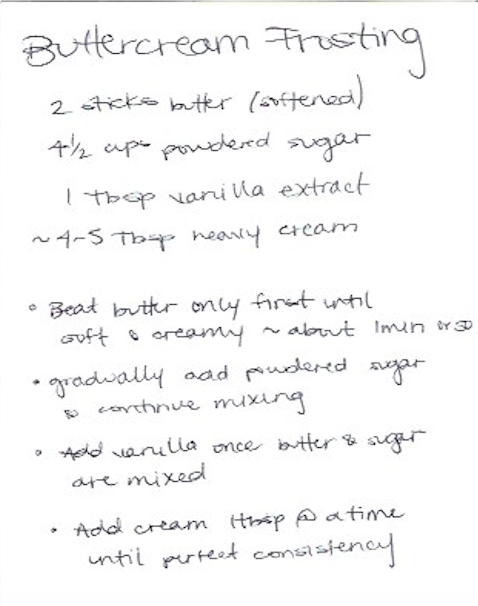 Buttercream Frosting
2 sticks butter (softened)
4 1/2 cups powdered sugar
1 tbsp vanilla extract
~ 4-5 Tbsp heavy cream
• Beat butter only first until
soft & creamy ~ about 1min or so
• gradually add powdered sugar
& continue mixing
• Add vanilla once butter & sugar
are mixed
• Add cream 1tbsp @ a time
until perfect consistency